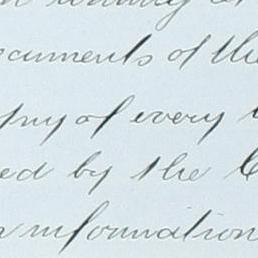 ocuments of the
py of every
ed by the
information